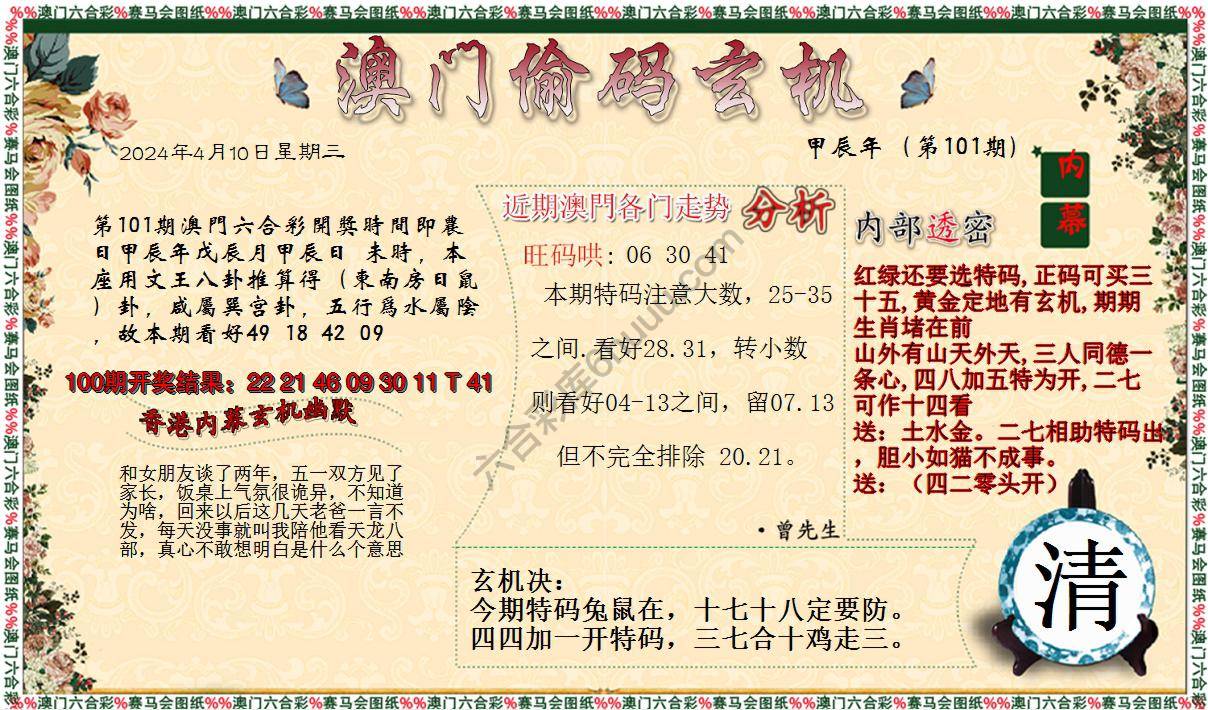 %%澳门六合彩%赛马会图纸%%澳门六合彩%赛马会图纸%%澳门六合彩%赛马会图纸%%澳门六合彩%赛马会图纸%%澳门六合彩%赛马会图纸%%澳门六合彩%赛马会图纸%%
澳门偷码玄机
2024年4月10日星期三
甲辰年（第101期）
内
幕
第101期澳門六合彩開獎時間即農
日甲辰年戊辰月甲辰日 未時，本
座用文王八卦推算得（東南房日鼠
）卦，咸屬巽宫卦，五行爲水屬陰
，故本期看好49 18 42 09
100期开奖结果：22 21 46 09 30 11 T 41
香港内幕玄机幽默
和女朋友谈了两年，五一双方见了
家长，饭桌上气氛很诡异，不知道
为啥，回来以后这几天老爸一言不
发，每天没事就叫我陪他看天龙八
部，真心不敢想明白是什么个意思
近期澳門各门走势 分析
旺码哄: 06 30 41
本期特码注意大数，25-35
之间.看好28.31，转小数
则看好04-13之间，留07.13
但不完全排除 20.21。
·曾先生
内部透密
红绿还要选特码,正码可买三
十五,黄金定地有玄机,期期
生肖堵在前
山外有山天外天,三人同德一
条心,四八加五特为开,二七
可作十四看
送：土水金。二七相助特码出
，胆小如猫不成事。
送：（四二零头开）
玄机决：
今期特码兔鼠在，十七十八定要防。
四四加一开特码，三七合十鸡走三。
清
%%澳门六合彩%赛马会图纸%%澳门六合彩%赛马会图纸%%澳门六合彩%赛马会图纸%%澳门六合彩%赛马会图纸%%澳门六合彩%赛马会图纸%%澳门六合彩%赛马会图纸%%